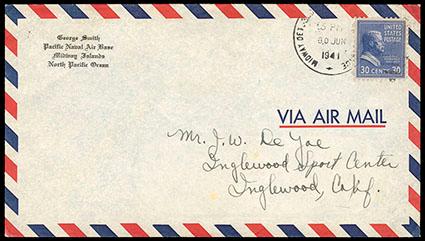 George Smith
Pacific Naval Air Base
Midway Islands
North Pacific Ocean
MIDWAY
PM
JUN
1941
UNITED STATES POSTAGE
30 CENTS 30
VIA AIR MAIL
Mr. J. W. De Yoe
Inglewood Sport Center
Inglewood, Calif.